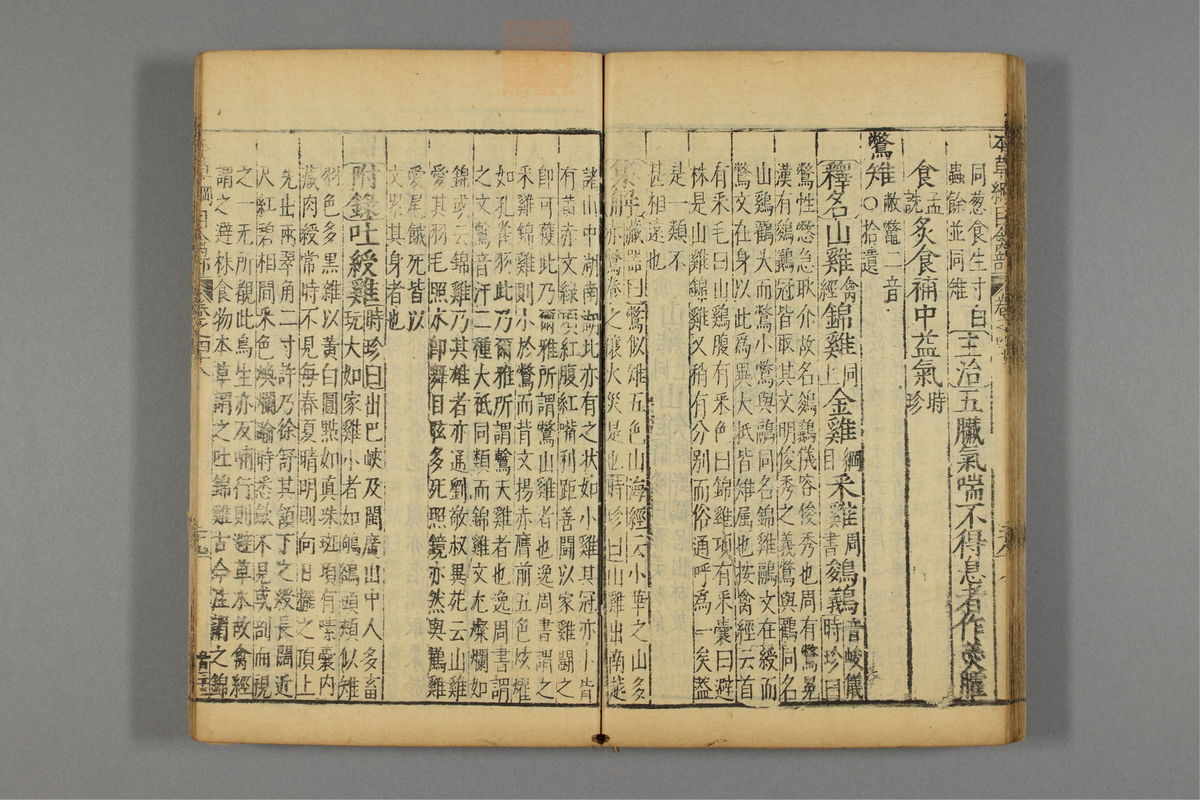 本草綱目禽部 卷之四十八
同葱食生寸白
蟲餘並同雉
主治五臟氣喘不得息者作羹臛
食孟詵炙食補中益氣時珍
鷩雉敝鼈二音〇拾遺
釋名山雞禽經錦雞同上金雞綱目采雞周書鵕䴊音峻儀時珍曰
鷩性憋急耿介故名鵕䴊儀容俊秀也周有鷩冕
漢有鵕䴊冠皆取其文明俊秀之義鷩與鸐同名
山鷄鸐大而鷩小鷩與鷊同名錦雞鷊文在綬而
鷩文在身以此為異大抵皆雉屬也按禽經云首
有采毛曰山鷄腹有采色曰錦雞項有采囊曰避
株是山雞錦雞又稍有分别而俗通呼為一矣葢
是一類不
甚相遠也
集解藏器曰鷩似雉五色山海經云小華之山多
赤鷩養之禳火災是也時珍曰山雞出南越
諸山中湖南湖北亦有之狀如小雞其冠亦小背
有黃赤文綠項紅腹紅嘴利距善鬪以家雞鬪之
即可獲此乃爾雅所謂鷩山雞者也逸周書謂之
采雞錦雞則小於鷩而背文揚赤膺前五色炫燿
如孔雀羽此乃爾雅所謂鶾天雞者也逸周書謂
之文鶾音汗二種大抵同類而錦雞文尤燦爛如
錦或云錦雞乃其雄者亦通劉敬叔異苑云山雞
愛其羽毛照水即舞目眩多死照鏡亦然與鶾雞
愛尾餓死皆以
文累其身者也
附錄吐綬雞時珍曰出巴峽及閩廣山中人多畜
玩大如家雞小者如鴝鵒頭頰似雉
羽色多黑雜以黃白圓點如真珠斑項有嗉囊内
藏肉綬常時不見每春夏晴明則向日擺之頂上
先出兩翠角二寸許乃徐舒其頷下之綬長闊近
尺紅碧相間采色煥爛踰時悉歛不見或剖而視
之一无所覩此鳥生亦反哺行則避草木故禽經
謂之避株食物本草謂之吐錦雞古今注謂之錦